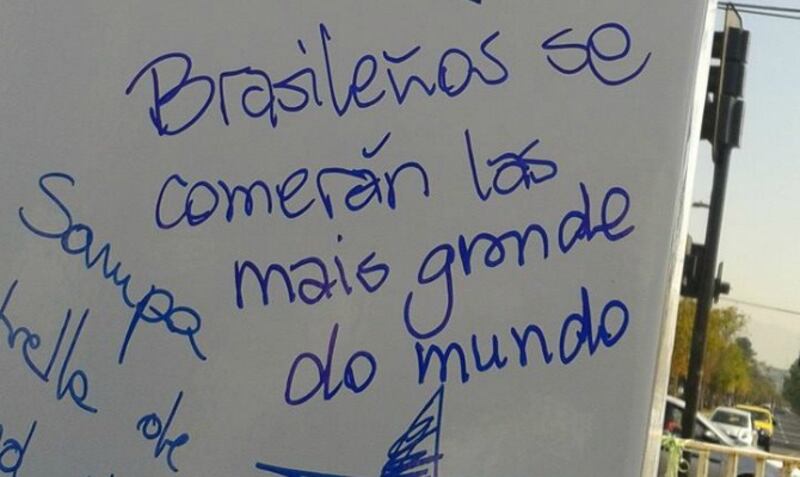 Brasileños se
comerán las
mais grande
do mundo
Sampa
de